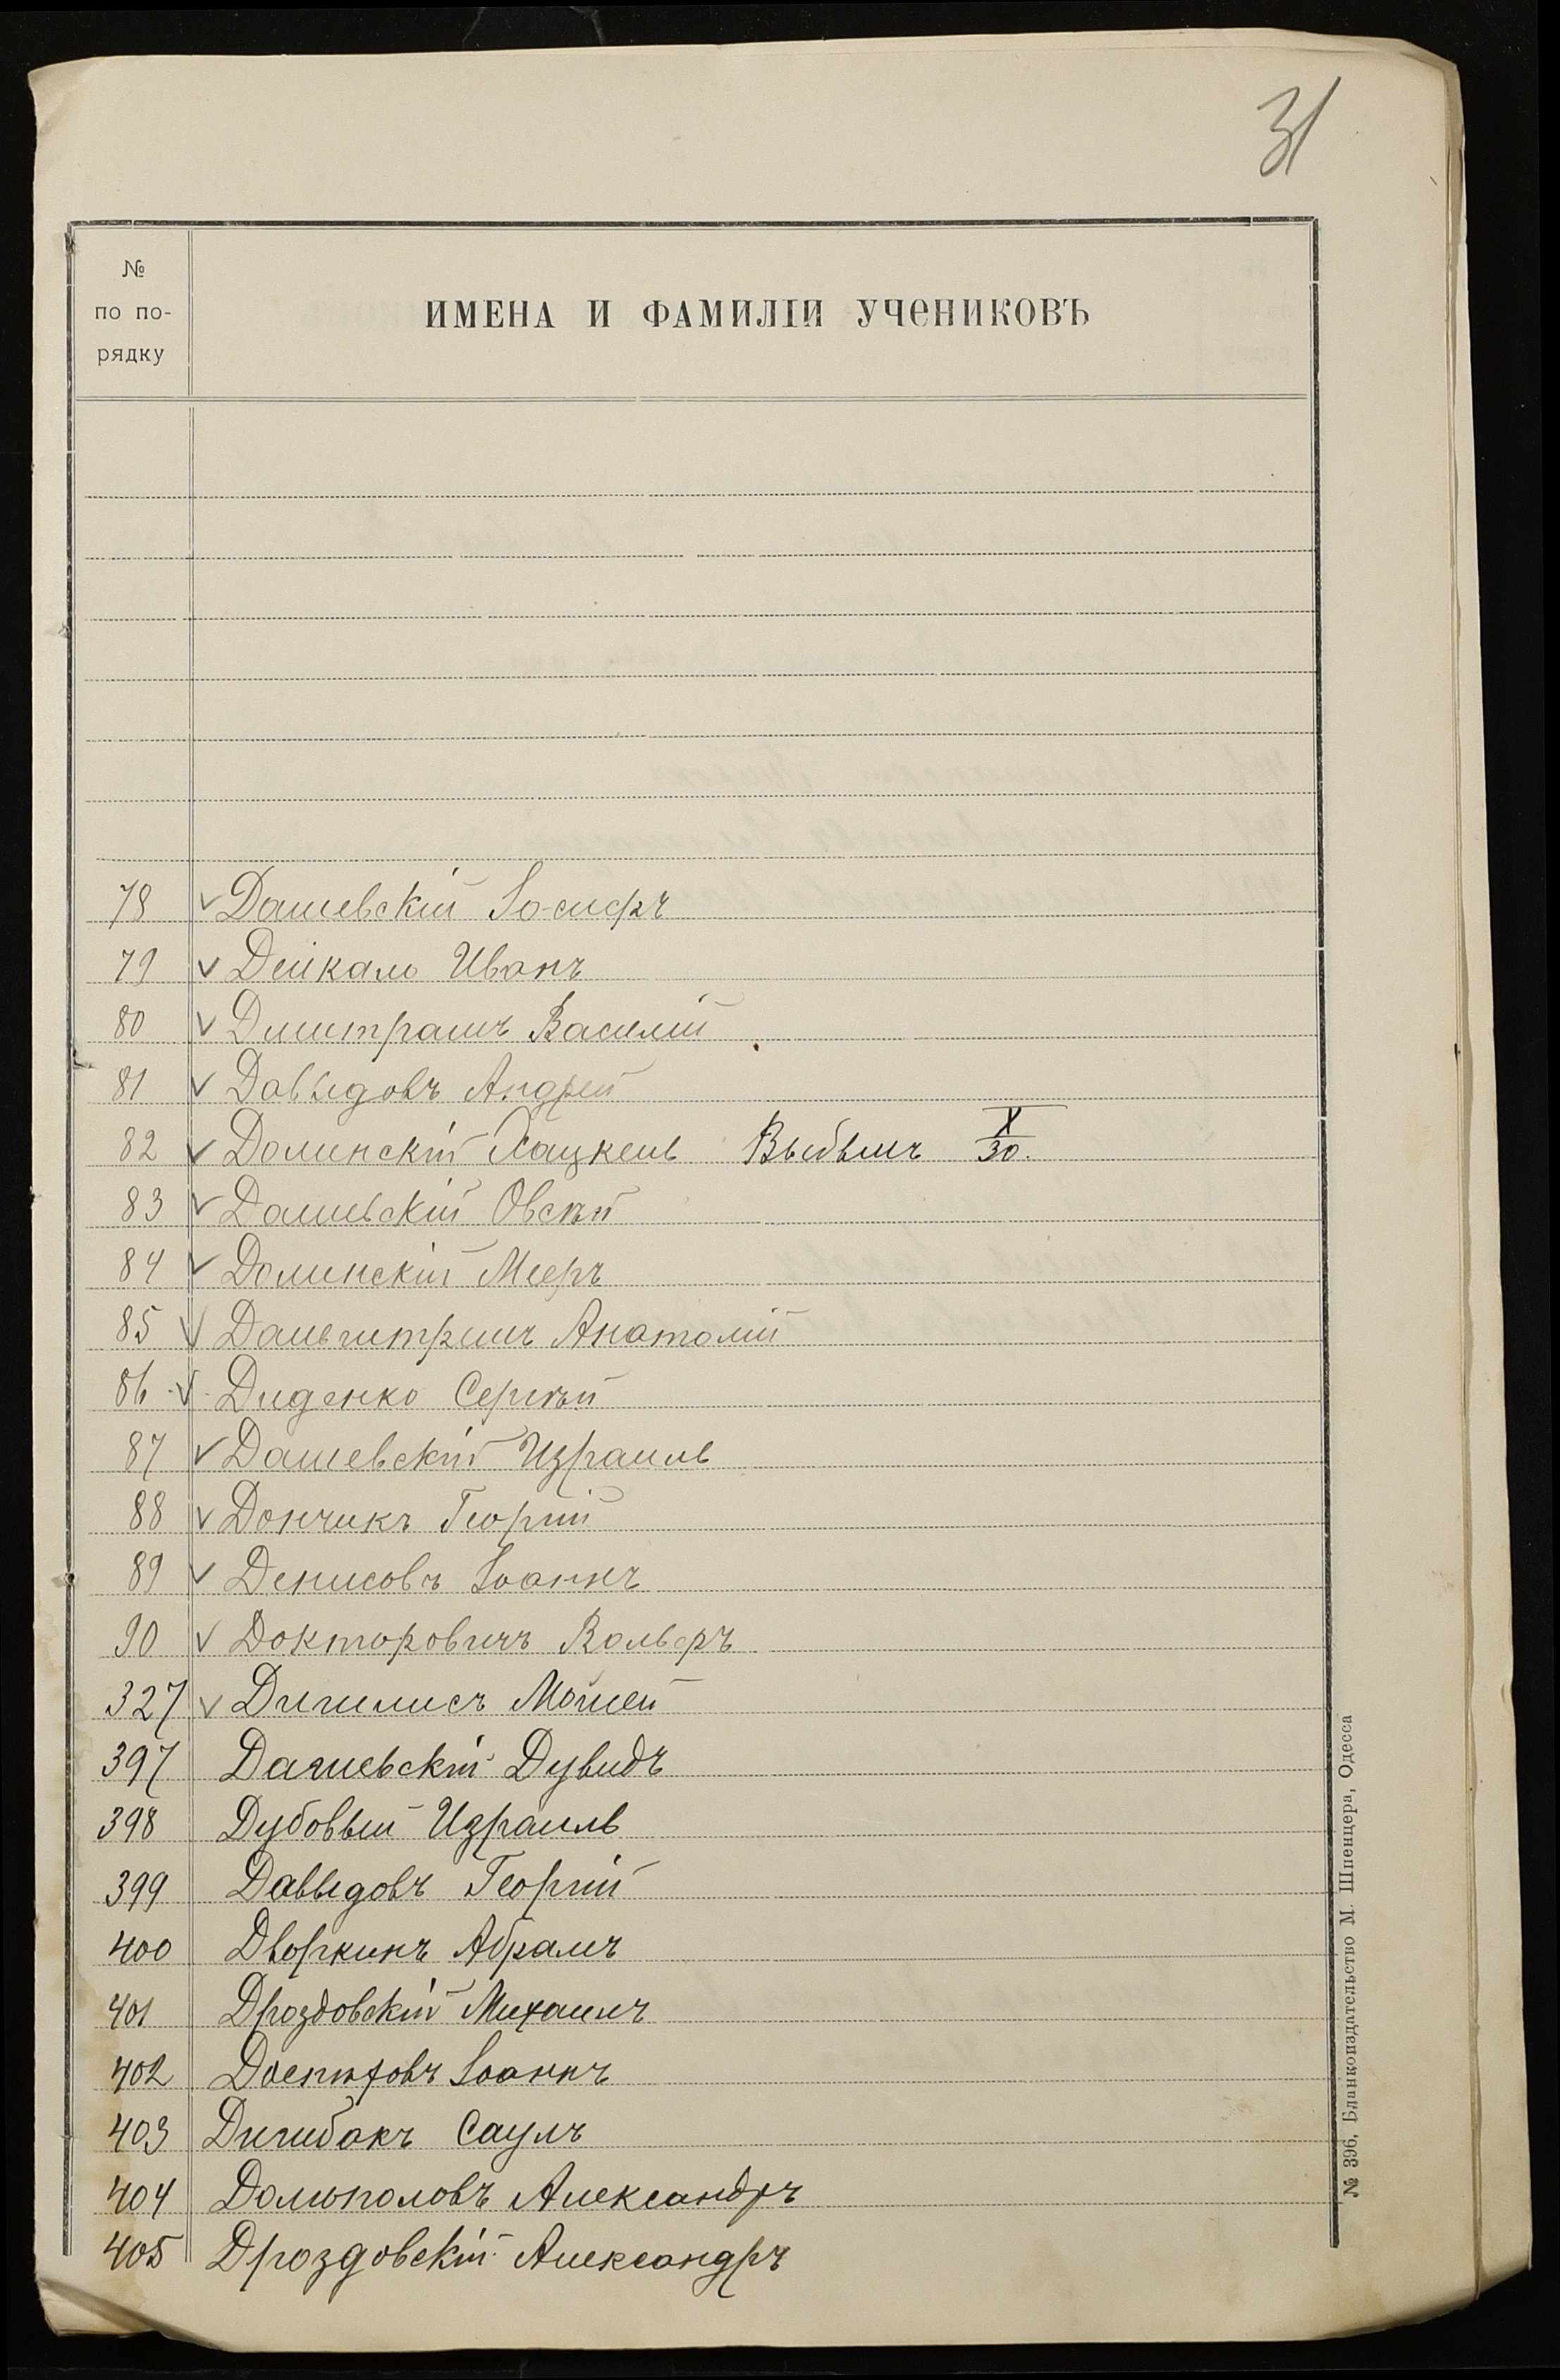 31
№
по по-
рядку
ИМЕНА И ФАМИЛІИ УЧЕНИКОВЪ
78 Дашевскій Іосифъ
79 Дейкало Иванъ
80 Димитрашъ Василій
81 Давыдовъ Андрей
82 Долинскій Хацкель Выбылъ X/30.
83 Дашевскій Овсѣй
84 Долинскій Мееръ
85 Анатолій
86 Диденко Сергѣй
87 Дашевскій Израиль
88 Дончикъ Георгій
89 Денисовъ Іоаннъ
90 Докторовичъ Вольфъ
327 Мошей
397 Дашевскій Дувидъ
398 Дубовый Израиль
399 Давыдовъ Георгій
400 Дворкинъ Абрамъ
401 Дроздовскій Михаилъ
402 Доспѣховъ Іоаннъ
403 Саулъ
404 Домополовъ Александръ
405 Дроздовскій Александръ
№ 396. Бланкоиздательство М. Шпенцера, Одесса